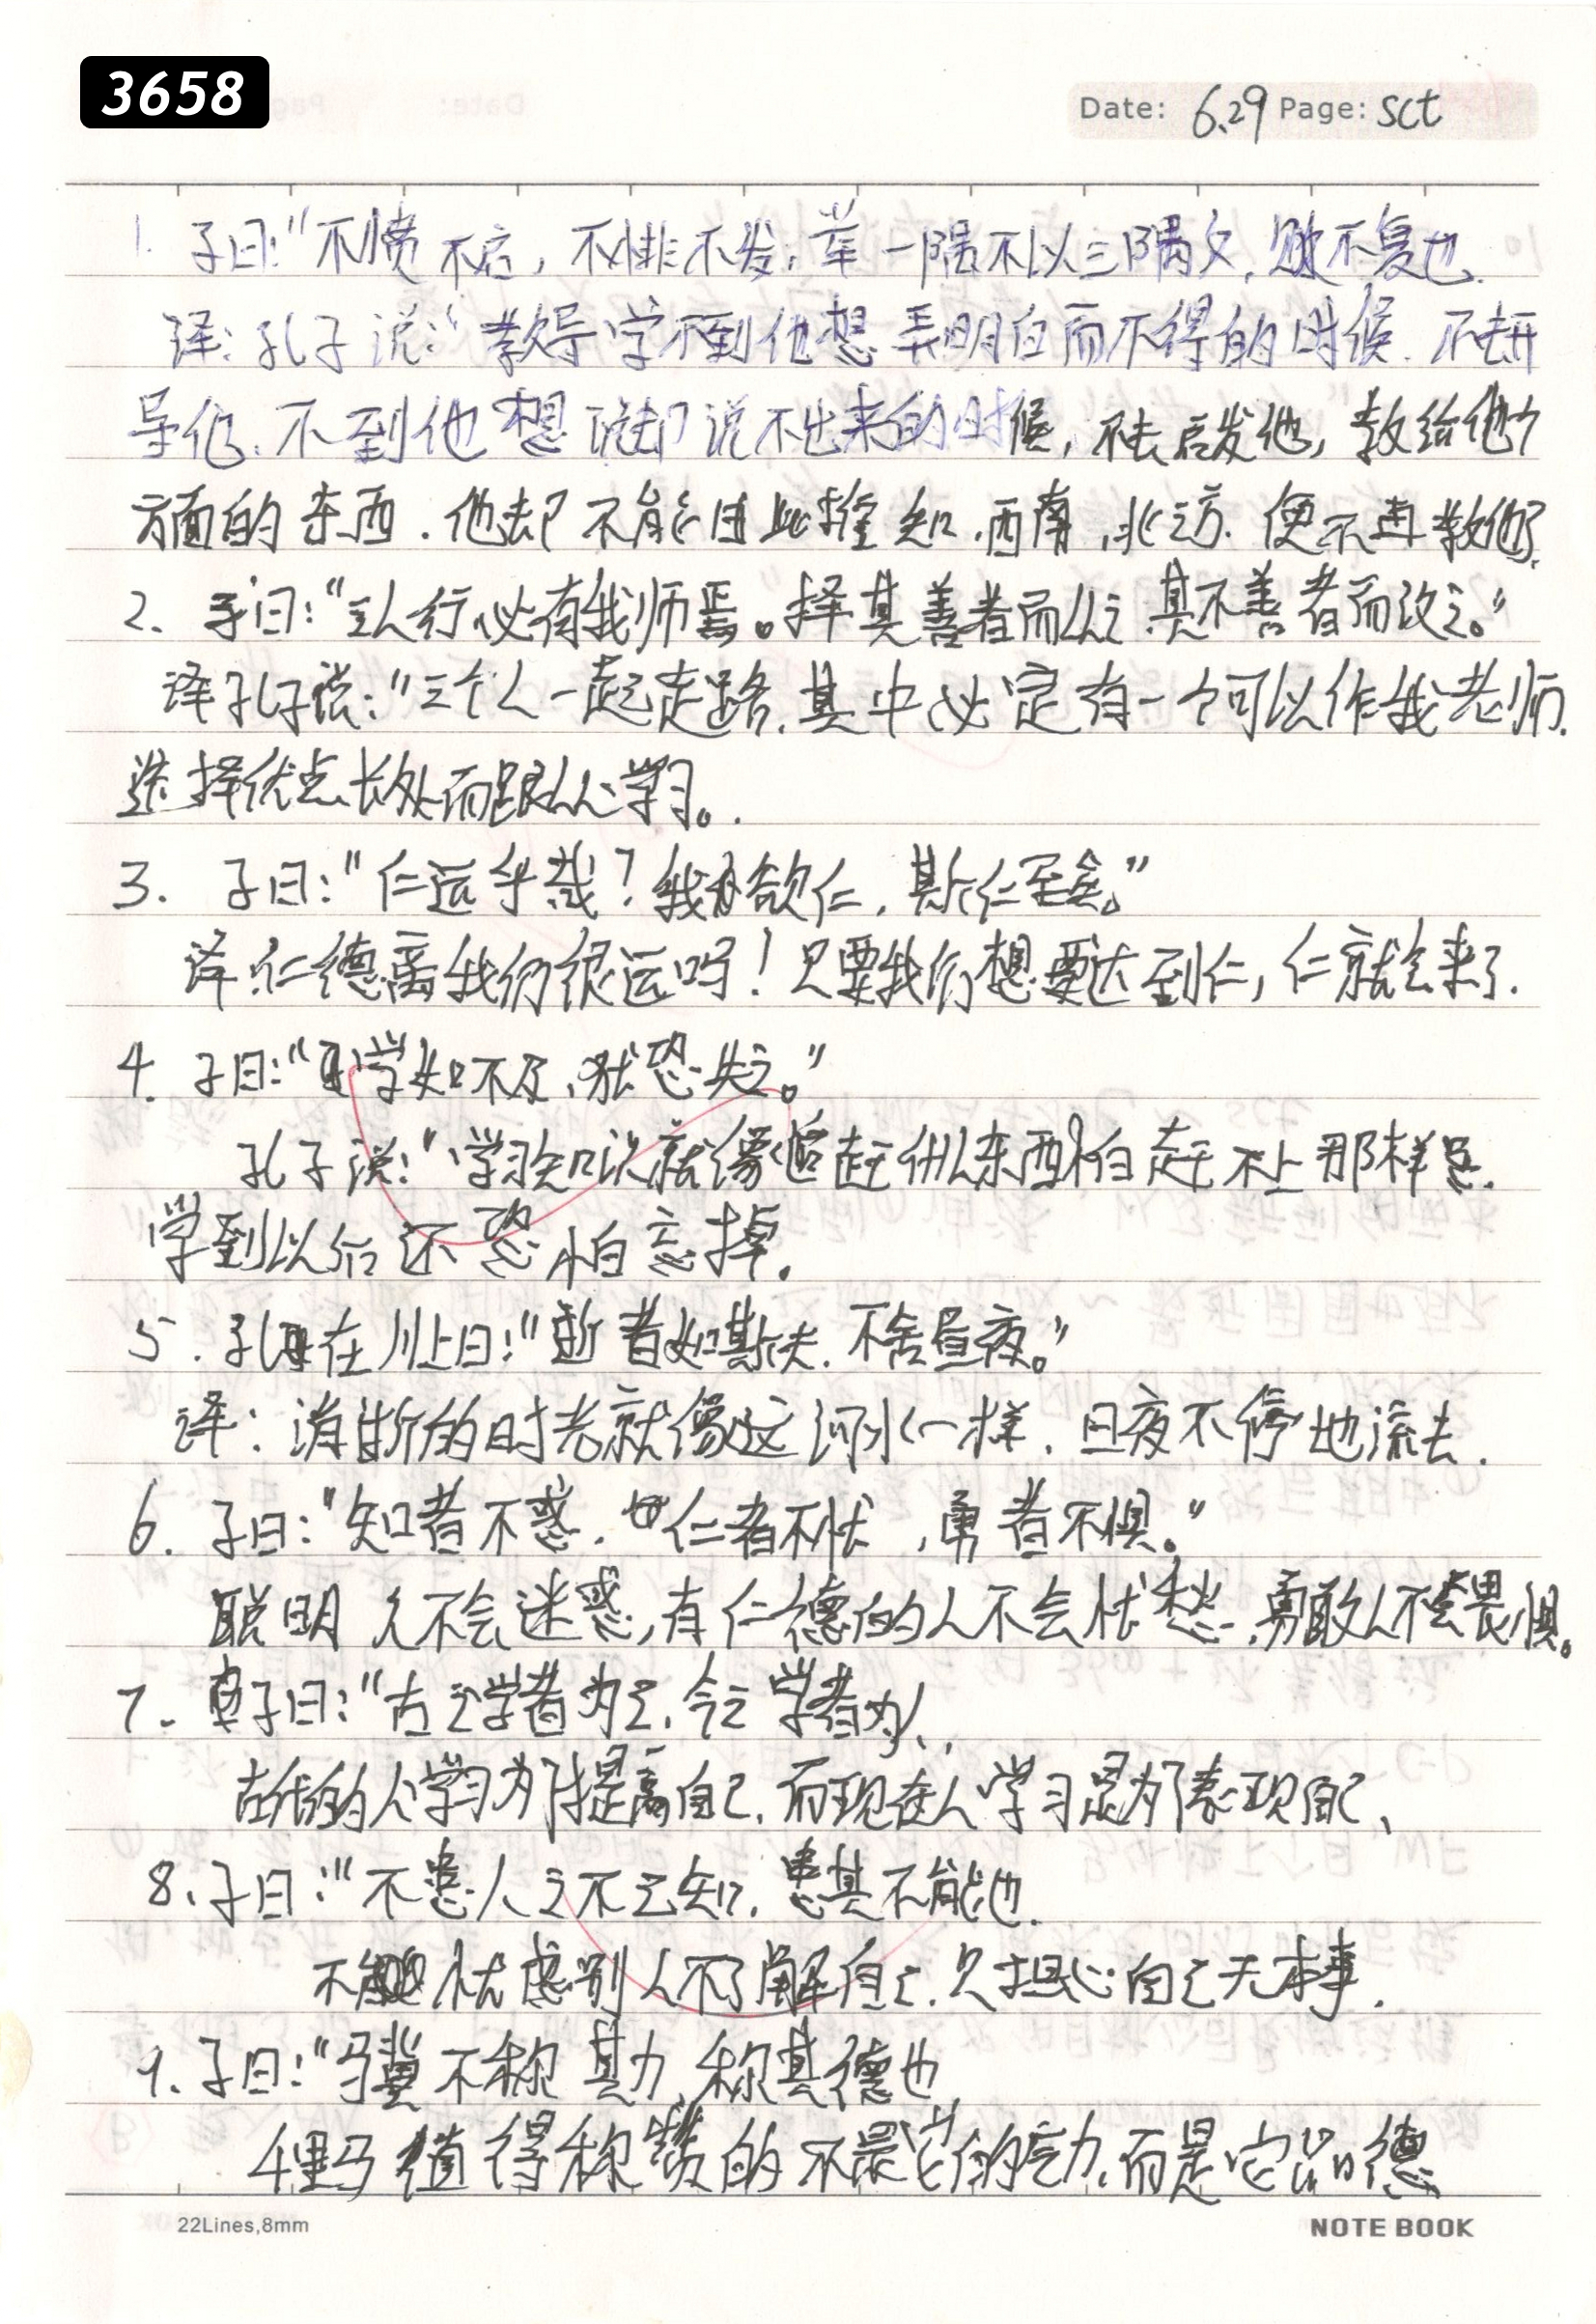 3658
Date: 6.29 Page: sct
1. 子曰:"不愤不启,不悱不发,举一隅不以三隅反,则不复也.
译:孔子说:"教导学不到他想弄明白而不得的时候.不去开
导他.不到他想说却说不出来的时候,不去启发他,教给他个
方面的东西.他却不能由此推知.西南,北方.便不再教他了.
2. 子曰:"三人行必有我师焉。择其善者而从之 其不善者而改之。"
译孔子说:"三个人一起走路.其中必定有一个可以作我老师.
选择优点长处而跟从心学习。.
3. 子曰:"仁远乎哉?我欲仁,斯仁至矣。"
译:仁德离我们很远吗!只要我们想要达到仁,仁就会来了.
4. 子曰:"学如不及,犹恐失之。"
孔子说:"学习知识就像追赶什么东西怕赶不上那样急.
学到以后还恐怕忘掉.
5. 子在川上曰:"逝者如斯夫.不舍昼夜。"
译:消逝的时光就像这河水一样.日夜不停地流去.
6. 子曰:"知者不惑.仁者不忧,勇者不惧。"
聪明人不会迷惑,有仁德的人不会忧愁.勇敢人不会畏惧。
7. 子曰:"古之学者为己.今之学者为人.
古代的人学习为了提高自己.而现在人学习是为了表现自己、
8. 子曰:"不患人之不己知.患其不能也.
不忧虑别人不了解自己.只担心自己无本事.
9. 子曰:"骥不称其力,称其德也
千里马值得称赞的不是它的气力.而是它品德
22Lines,8mm NOTE BOOK